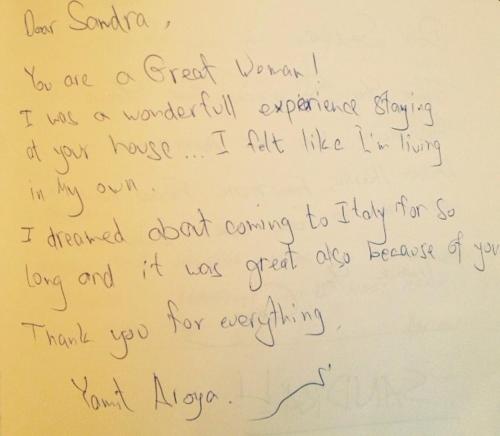 Dear Sandra,
You are a Great Woman!
I was a wonderfull experience staying
at your house... I felt like I'm living
in My own.
I dreamed about coming to Italy for so
long and it was great also because of you
Thank you for everything,
Yamit Aroya.